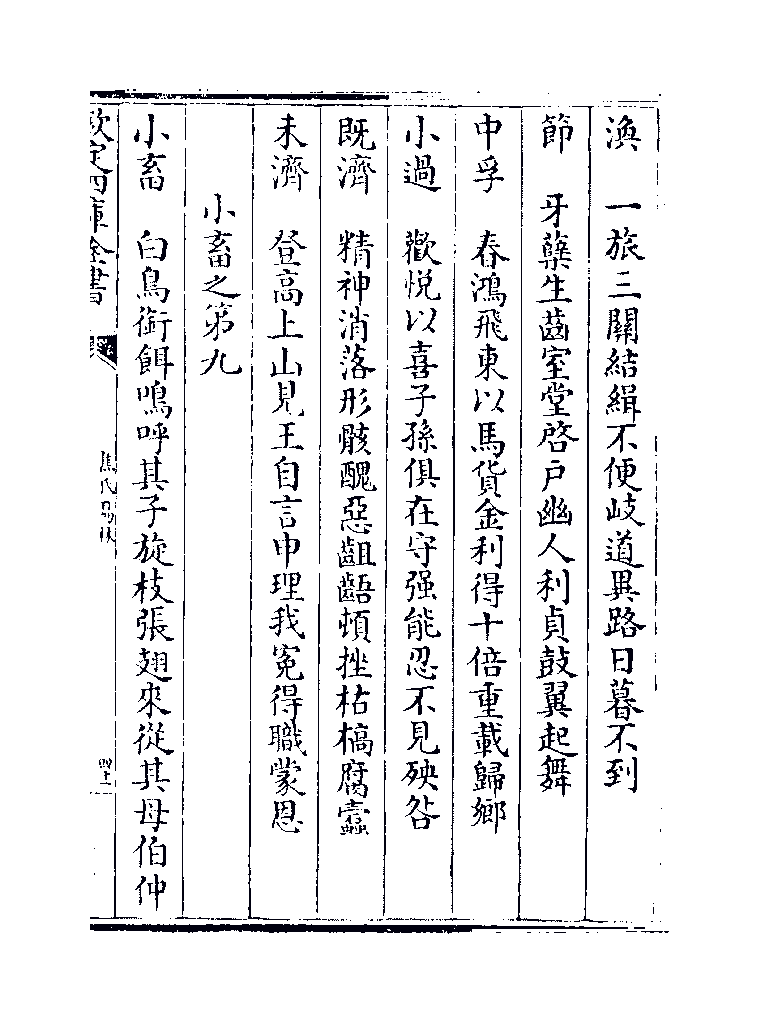 渙　一旅三關結緝不便岐道異路日暮不到
節　牙蘖生齒室堂啓戶幽人利貞鼓翼起舞
中孚　春鴻飛東以馬貨金利得十倍重載歸鄉
小過　歡悅以喜子孫俱在守强能忍不見殃咎
既濟　精神消落形骸醜惡齟齬頓挫枯槁腐蠹
未濟　登高上山見王自言申理我寃得職蒙恩
小畜之第九
小畜　白鳥銜餌鳴呼其子旋枝張翅來從其母伯仲
欽定四庫全書
焦氏易林